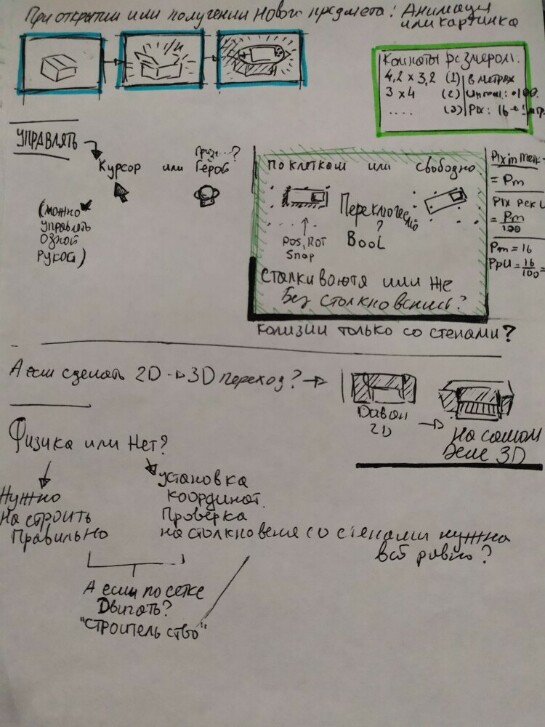 При открытии или получении нового предмета: Анимация
или картинка
Комнаты размером:
4,2 x 3,2 (1) в метрах
3 x 4 (2)
.... (3)
Управлять
Курсор или Герой
?
(можно
управлять
одной
рукой)
по клеткам или свободно
Переключение
?
Bool
Pos, Rot
Snap
Сталкиваются или Не
Без столкновений?
Колизии только со стенами?
= Pm
Pm
100
Pm = 16
PpU = 16/100 =
А если сделать 2D → 3D переход? →
Диван
2D
→ На самом
деле 3D
Физика или Нет?
Нужно
Настроить
Правильно
Установка
координат.
Проверка
на столкновения со стенами нужна
всё равно?
А если по сетке
Двигать?
"Строительство"